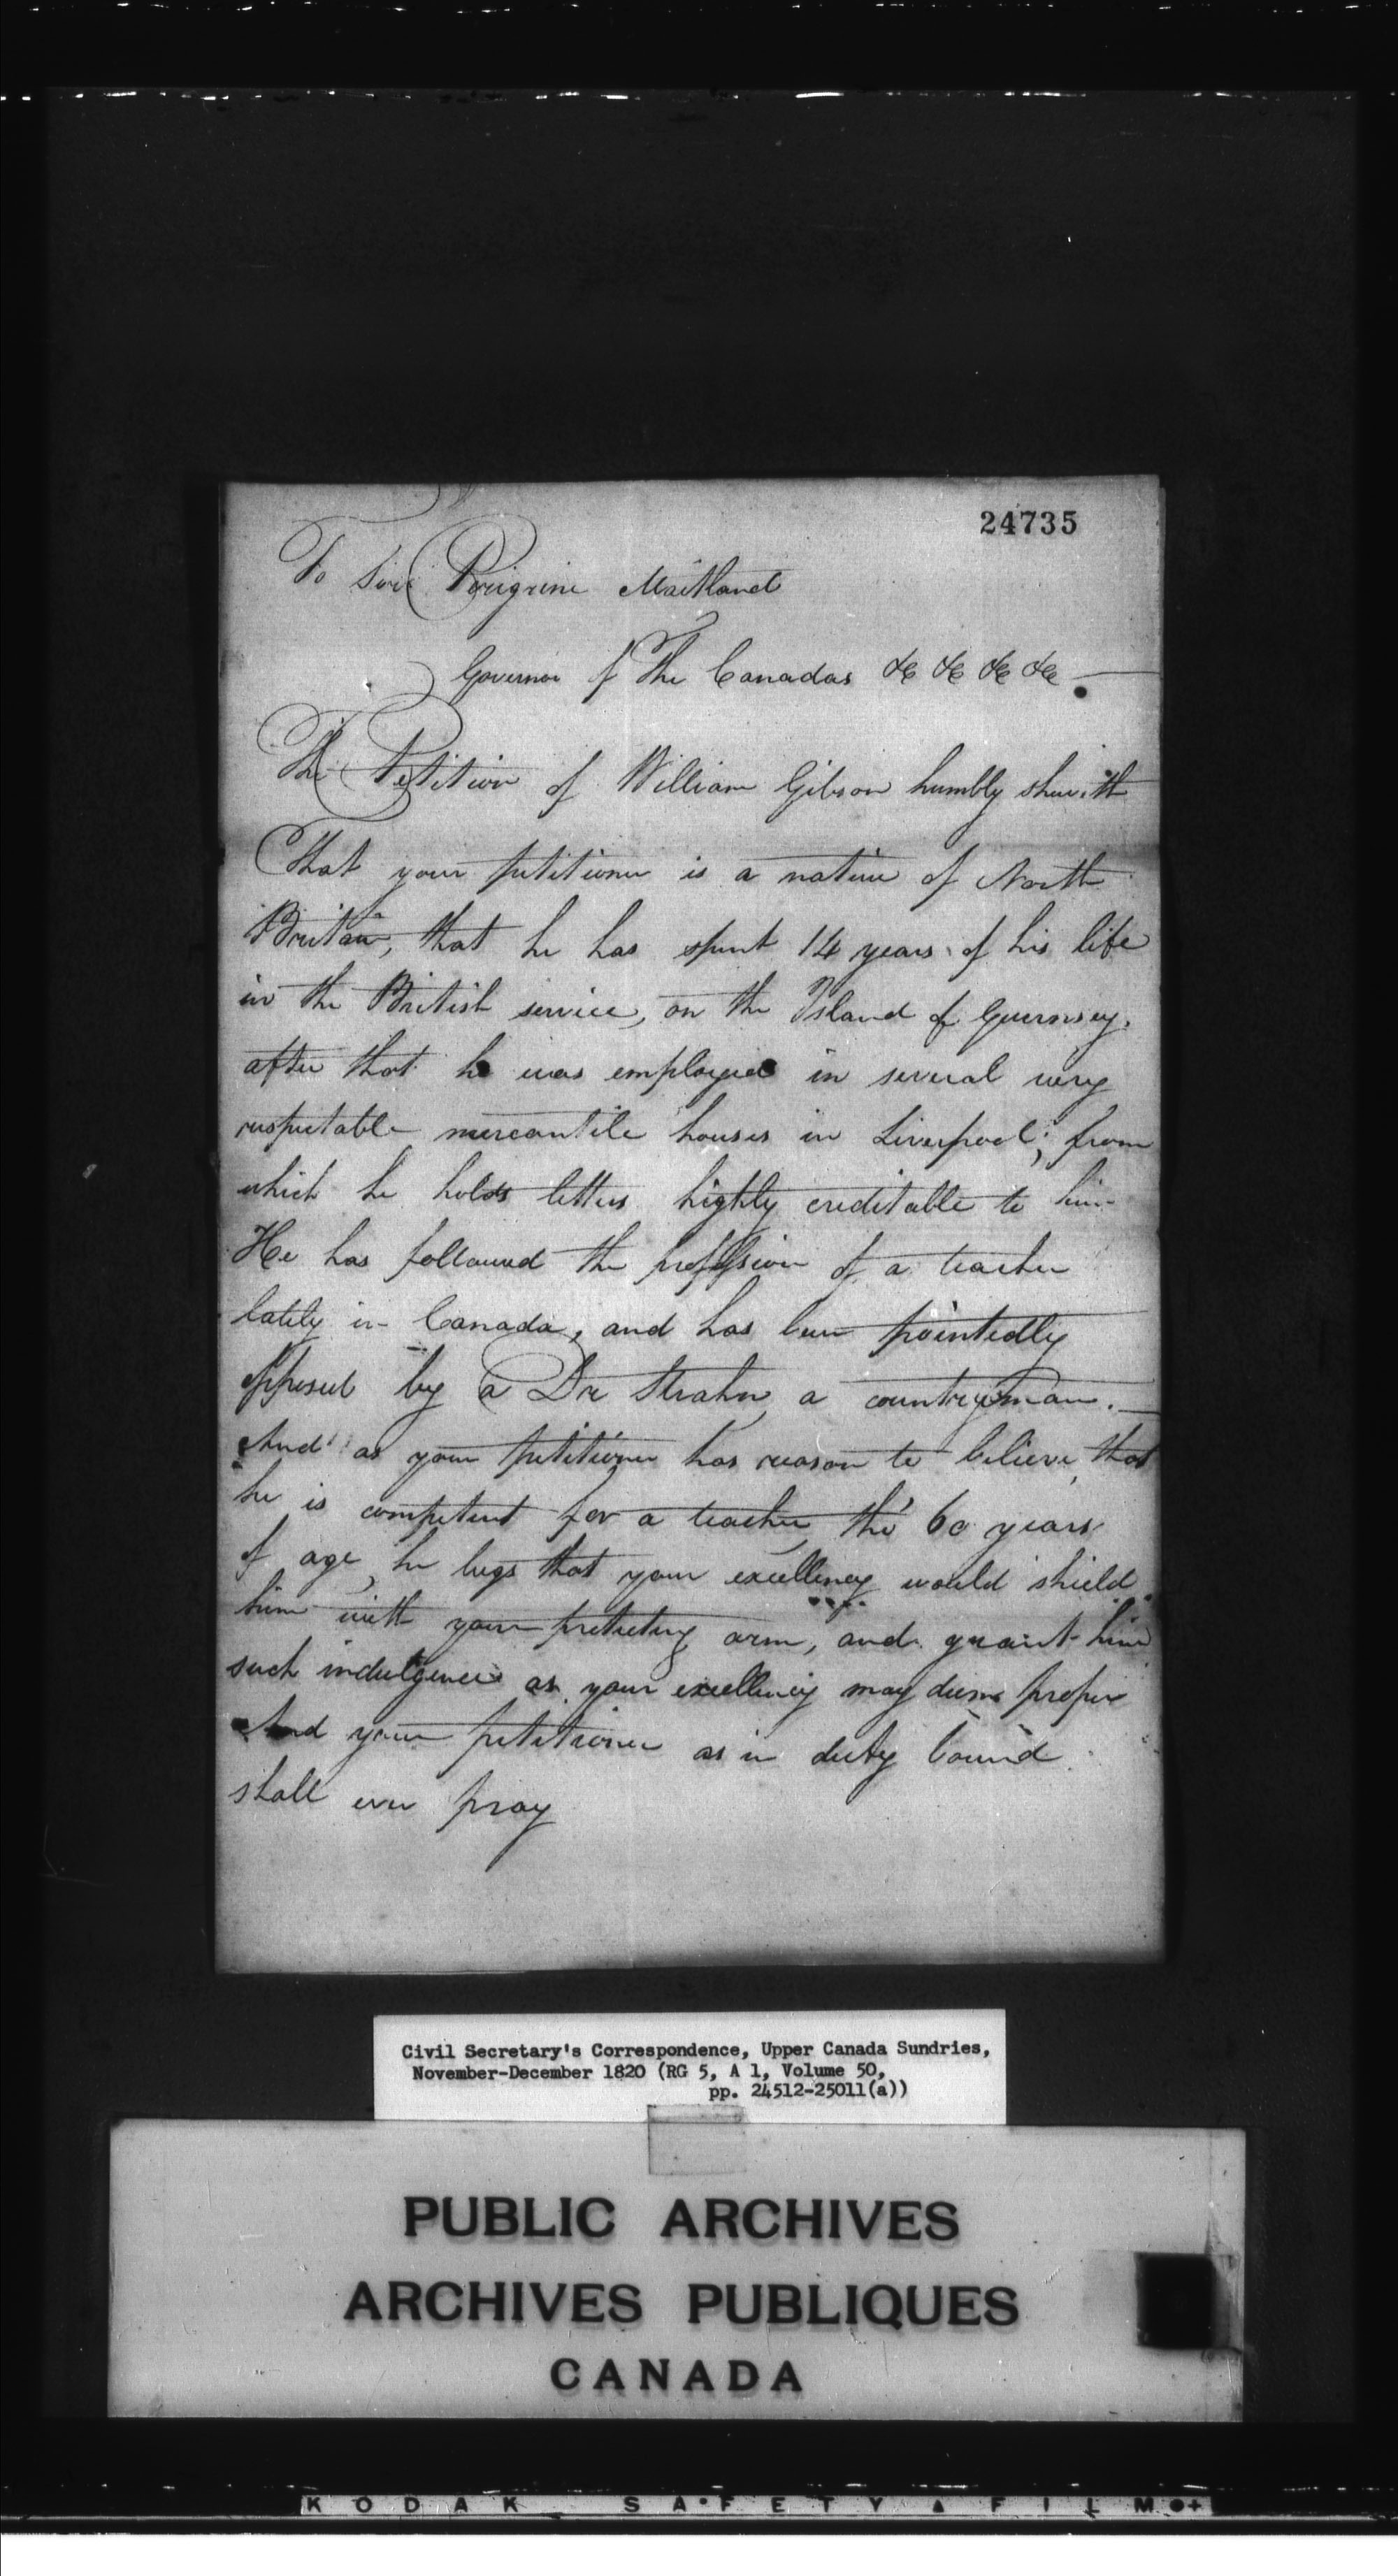 24735
To Sir Perigrine Maitland
Governor of The Canadas &c &c &c &c
The Petition of William Gibson humbly sheweth
That your petitioner is a native of North
Britain, that he has spent 14 years of his life
in the British service, on the Island of Guernsey.
after that he was employed in several very
respectable mercantile houses in Liverpool; from
which he holds letters highly creditable to him
He has followed the profession of a teacher
lately in Canada, and has been pointedly
opposed by a Dr Strahn a countryman.
And as your petitioner has reason to believe that
he is competent for a teacher, tho' 60 years
of age, he begs that your excellency would shield
him with your protecting arm, and grant him
such indulgence as your excellency may deem proper
And your petitioner as in duty bound
shall ever pray
Civil Secretary's Correspondence, Upper Canada Sundries,
November-December 1820 (RG 5, A 1, Volume 50,
pp. 24512-25011(a))
PUBLIC ARCHIVES
ARCHIVES PUBLIQUES
CANADA
KODAK SAFETY FILM